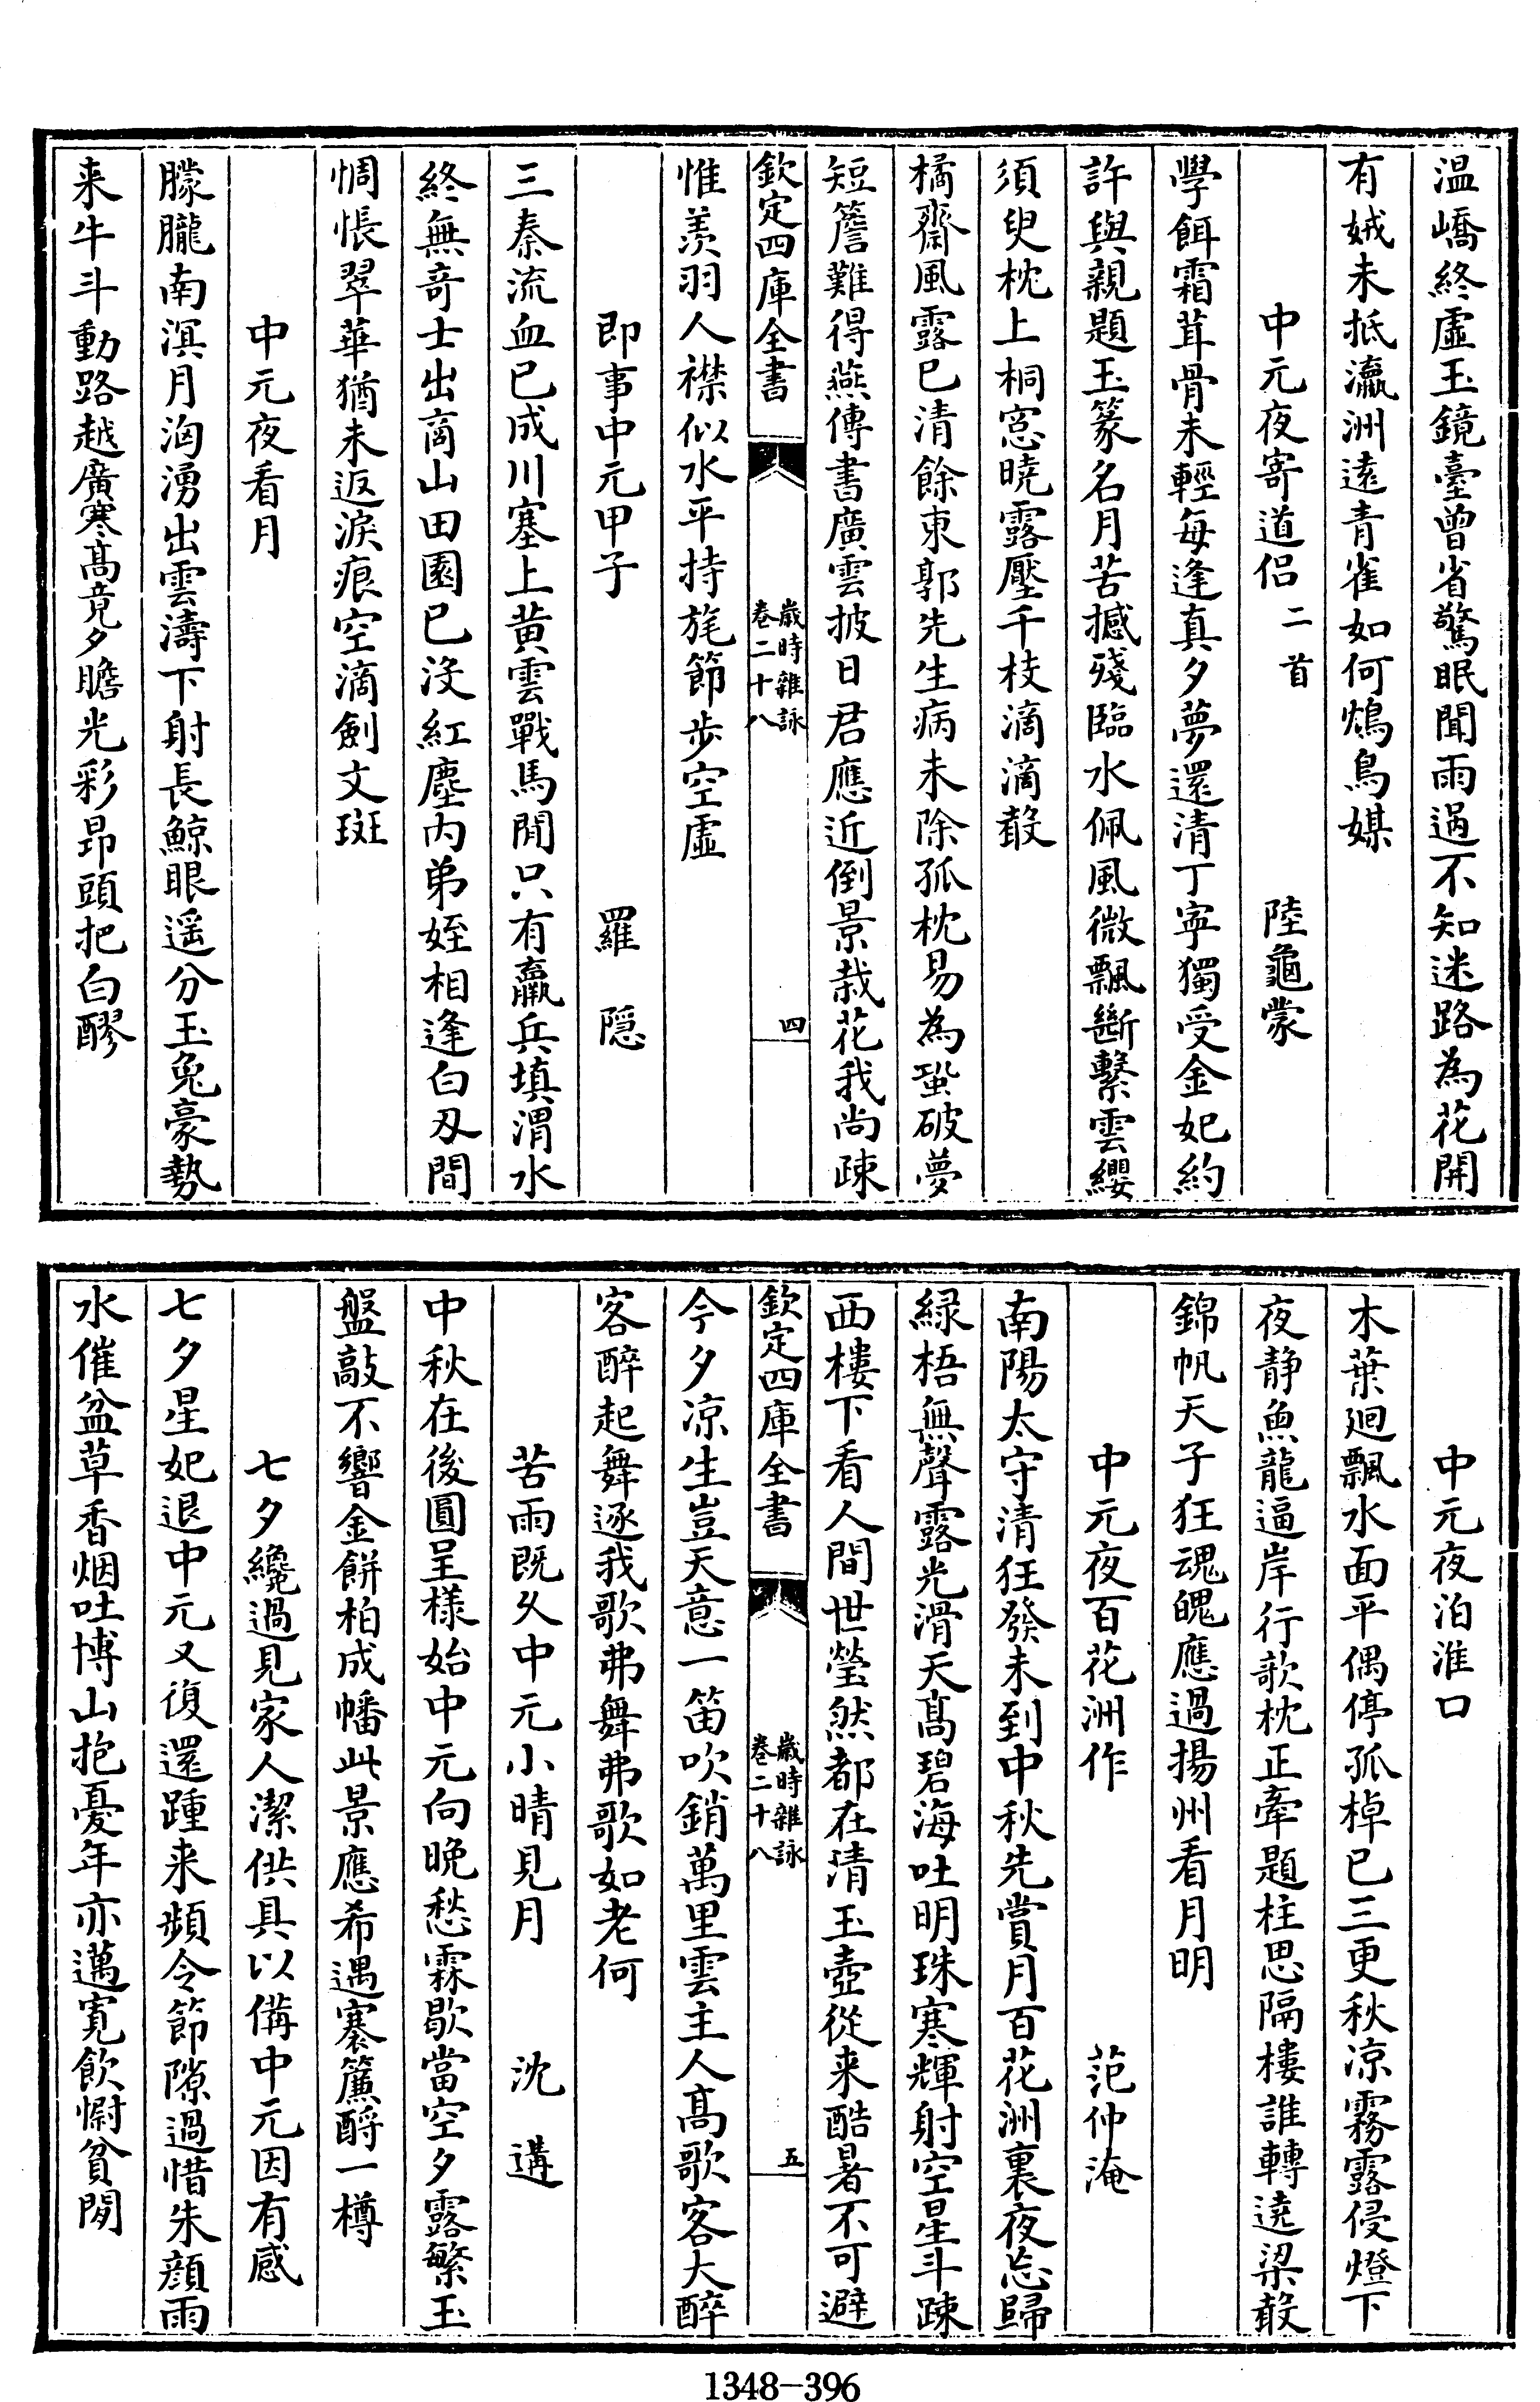 温嶠終虛玉鏡臺曾省驚眠聞雨過不知迷路為花開
有娀未抵瀛洲遠青雀如何鴆鳥媒
中元夜寄道侣二首 陸龜蒙
學餌霜茸骨未輕每逢真夕夢還清丁寧獨受金妃約
許與親題玉篆名月苦撼殘臨水佩風微飄斷繫雲纓
須臾枕上桐窓曉露壓千枝滴滴聲
橘齋風露已清餘東郭先生病未除孤枕易為蛩破夢
短簷難得燕傳書廣雲披日君應近倒景栽花我尚疎
欽定四庫全書 歲時雜詠 卷二十八 四
惟羨羽人襟似水平持旄節步空虛
即事中元甲子 羅隠
三秦流血已成川塞上黄雲戰馬閒只有羸兵填渭水
終無奇士出商山田園已沒紅塵内弟姪相逢白刃間
惆悵翠華猶未返淚痕空滴劍文斑
中元夜看月
朦朧南溟月洶湧出雲濤下射長鯨眼遥分玉兔豪勢
来牛斗動路越廣寒髙竟夕瞻光彩昂頭把白醪
中元夜泊淮口
木葉廻飄水面平偶停孤棹已三更秋凉霧露侵燈下
夜静魚龍逼岸行欹枕正牽題柱思隔樓誰轉遶梁聲
錦帆天子狂魂魄應過揚州看月明
中元夜百花洲作 范仲淹
南陽太守清狂發未到中秋先賞月百花洲裏夜忘歸
緑梧無聲露光滑天髙碧海吐明珠寒輝射空星斗疎
西樓下看人間世瑩然都在清玉壺從来酷暑不可避
欽定四庫全書 歲時雜詠 卷二十八 五
今夕凉生豈天意一笛吹銷萬里雲主人髙歌客大醉
客醉起舞逐我歌弗舞弗歌如老何
苦雨既久中元小晴見月 沈遘
中秋在後圓呈様始中元向晚愁霖歇當空夕露繁玉
盤敲不響金餅柏成幡此景應希遇褰簾酹一樽
七夕纔過見家人潔供具以備中元因有感
七夕星妃退中元又復還踵来頻令節隙過惜朱顔雨
水催盆草香烟吐博山抱憂年亦邁寛飲慰貧閑
1348-396